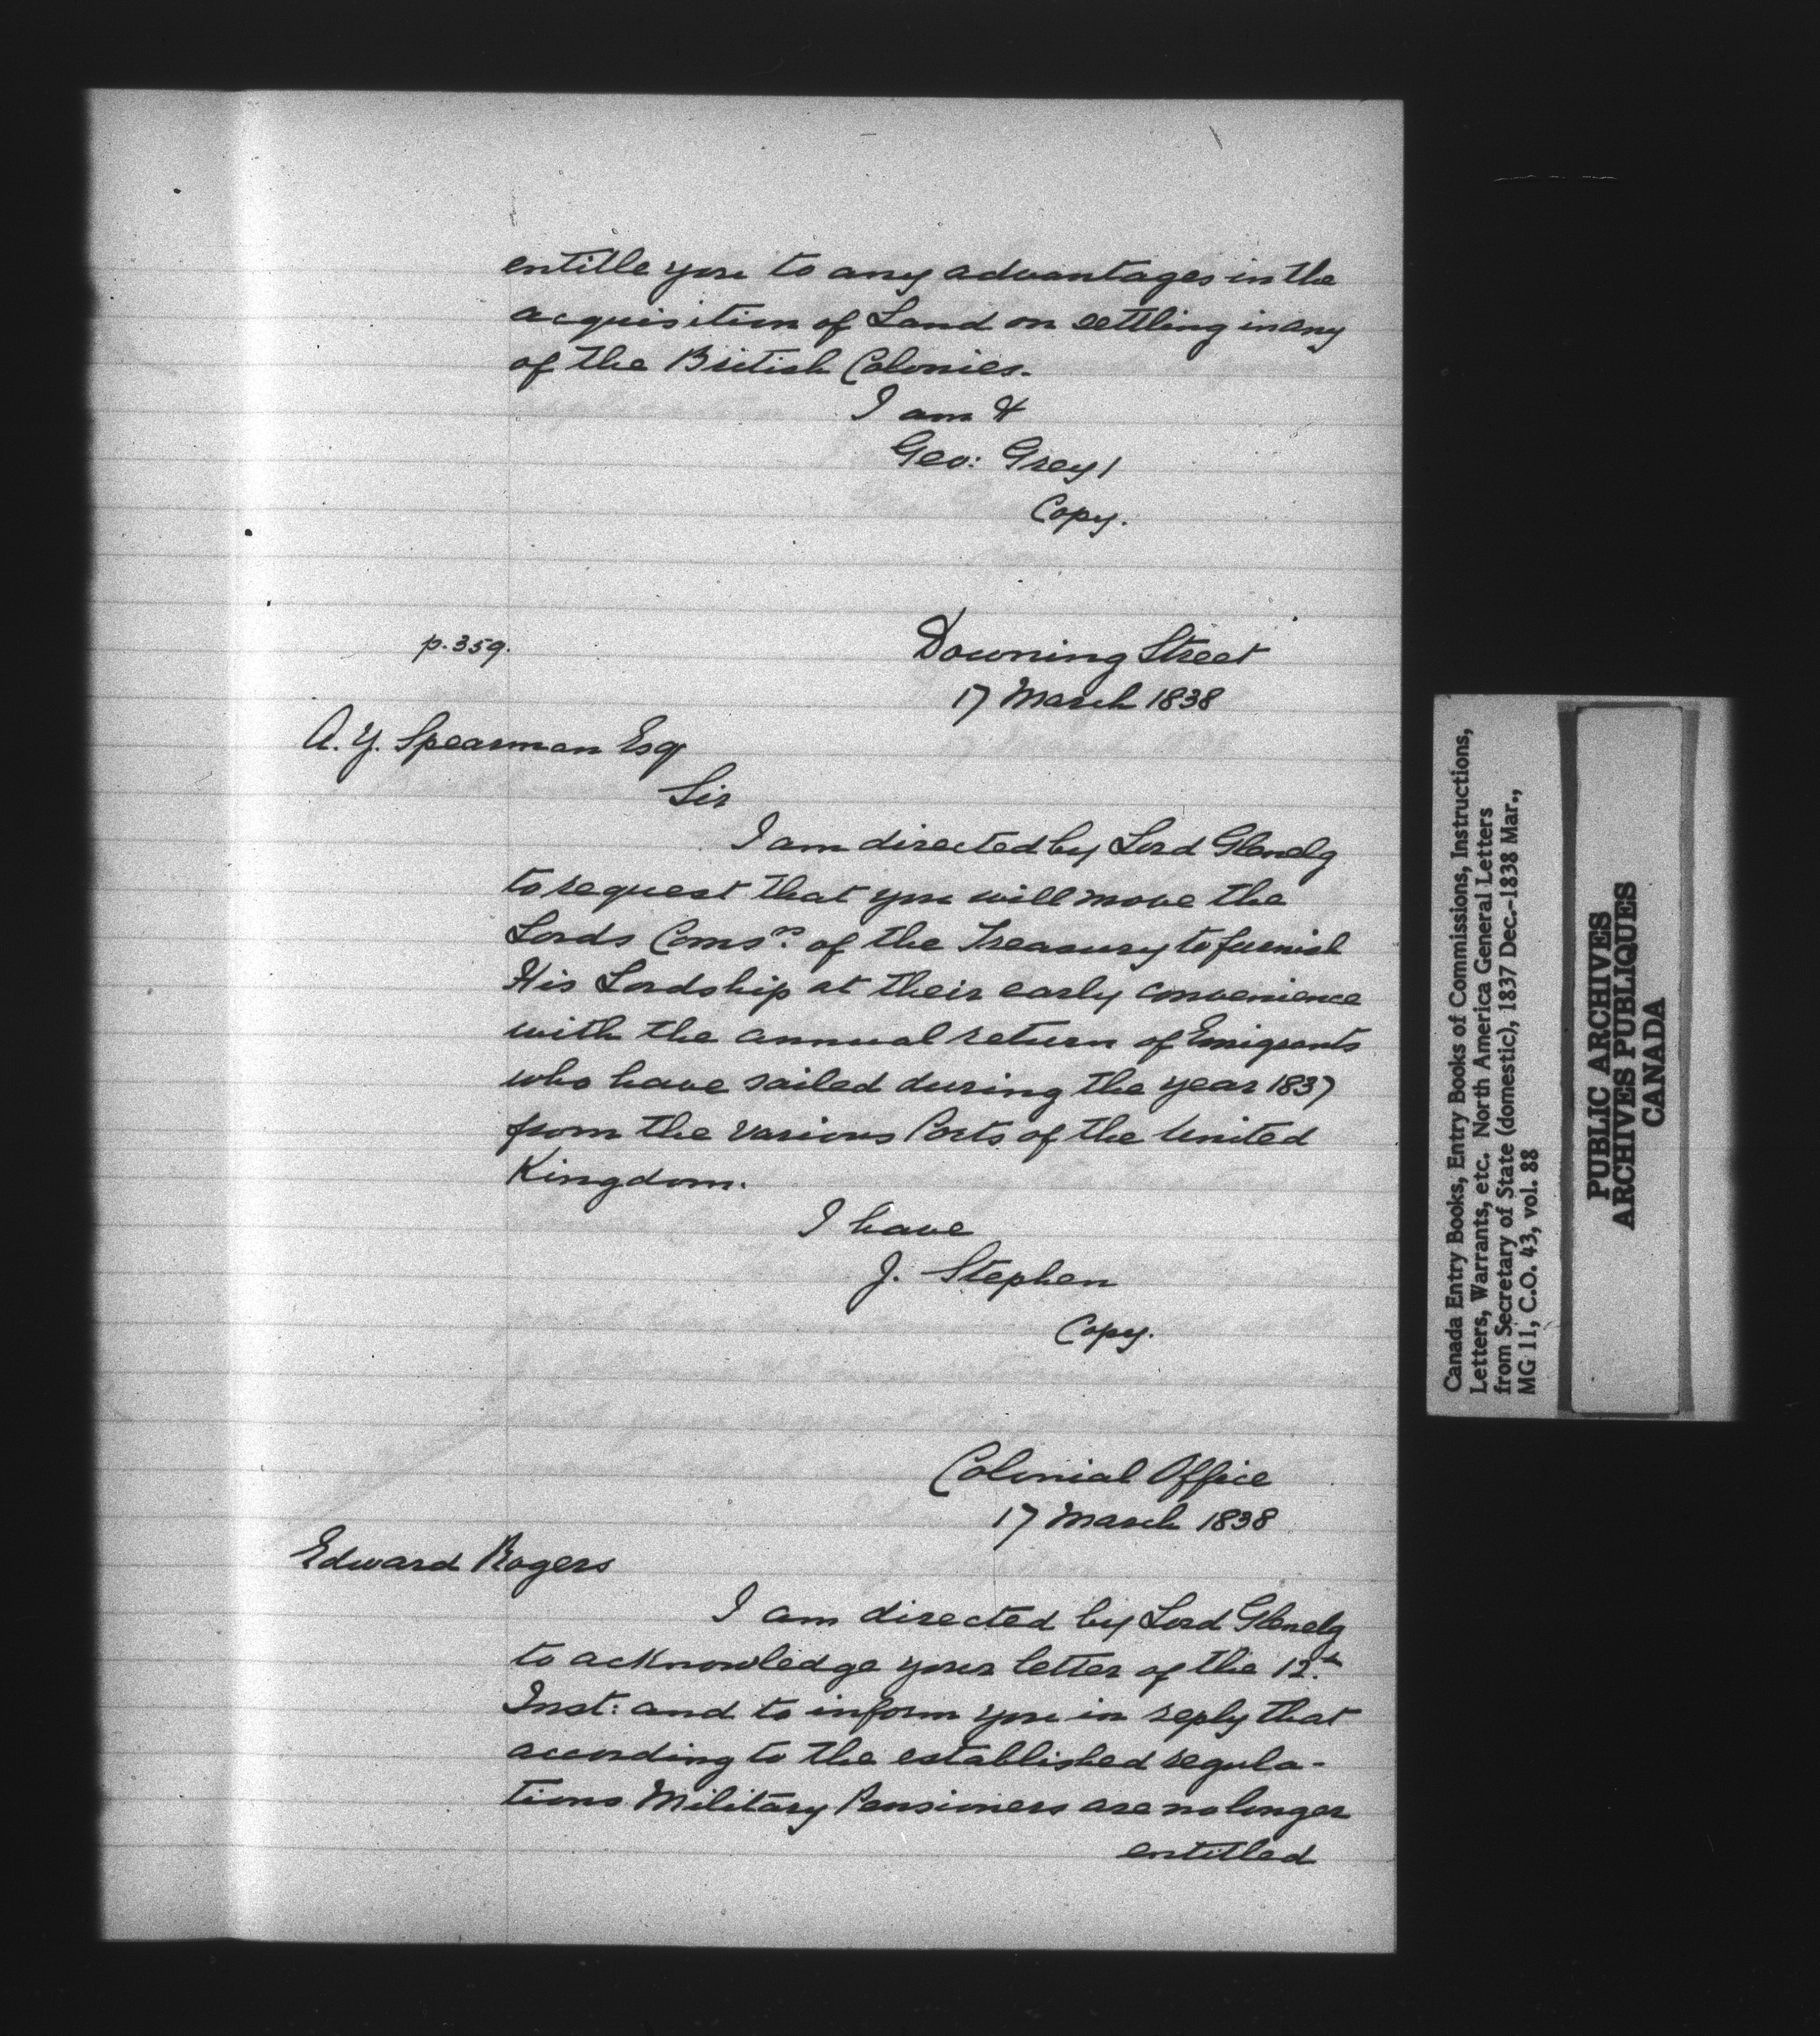 entitle you to any advantages in the
acquisition of Land on settling in any
of the British Colonies.
I am &
Geo: Grey/
Copy.
p. 359.
Downing Street
17 March 1838
A. Y. Spearman Esqr
Sir
I am directed by Lord Glenelg
to request that you will move the
Lords Comsrs. of the Treasury to furnish
His Lordship at their early convenience
with the annual return of Emigrants
who have sailed during the year 1837
from the various Ports of the United
Kingdom.
I have
J. Stephen
Copy.
Colonial Office
17 March 1838
Edward Rogers
I am directed by Lord Glenelg
to acknowledge your letter of the 12th
Inst: and to inform you in reply that
according to the established regula-
tions Military Pensioners are no longer
entitled
Canada Entry Books, Entry Books of Commissions, Instructions,
Letters, Warrants, etc. North America General Letters
from Secretary of State (domestic), 1837 Dec.-1838 Mar.,
MG 11, C.O. 43, vol. 88
PUBLIC ARCHIVES
ARCHIVES PUBLIQUES
CANADA